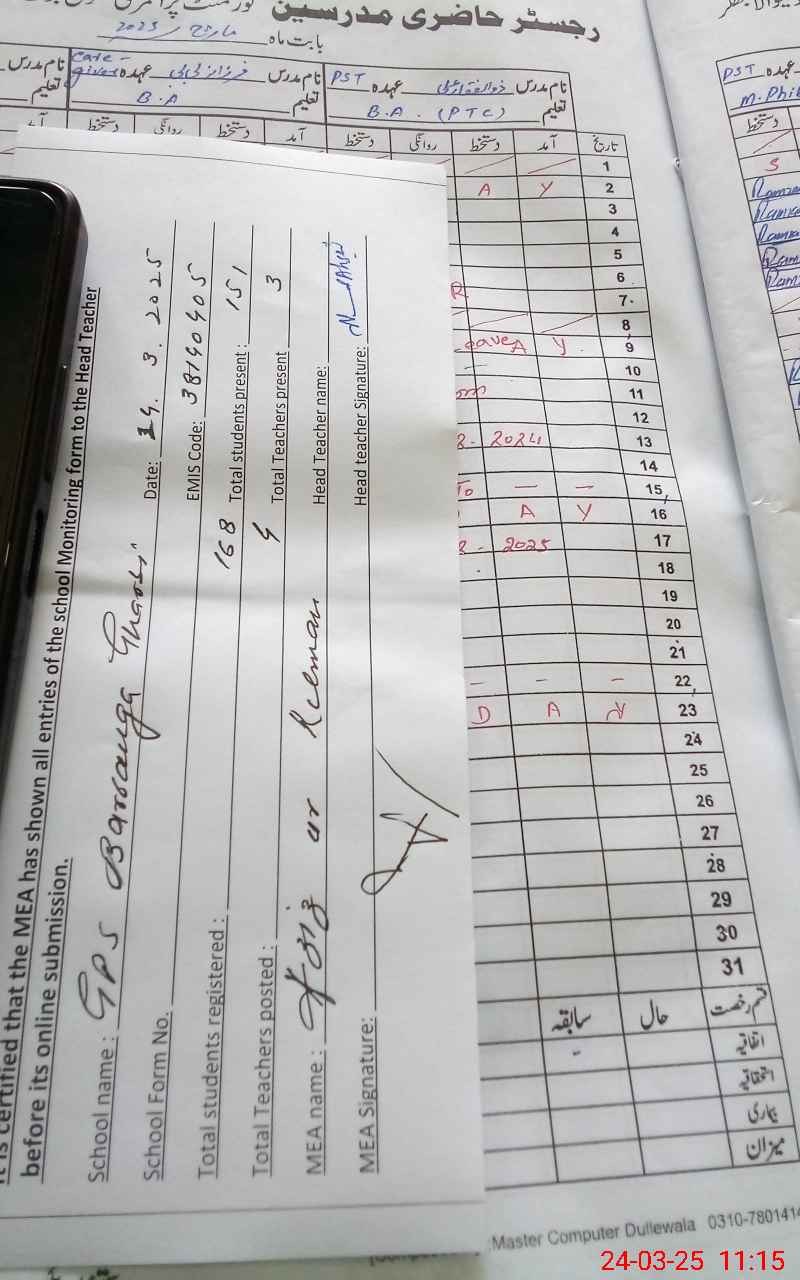 رجسٹر حاضری مدرسین
بابت ماہ مارچ 2025
نام مدرس ذوالفقار علی عہدہ PST
تعلیم B.A. (PTC)
نام مدرس فرزانہ بی بی عہدہ Care-giver
تعلیم B.A
نام مدرس
تعلیم
عہدہ PST
M.Phil
دستخط
تاریخ آمد دستخط روانگی دستخط آمد دستخط روانگی دستخط آمد
1
2 Y A
3
4
5
6
7. R
8
9 Y A eave
10
11
12
13 2024
14
15 — —
16 Y A
17 2025
18
19
20
21
22 — — —
23 N A D
24
25
26
27
28
29
30
31
قسم رخصت حال سابقہ
اتفاقیہ -
استحقاقیہ
بیماری
میزان
is certified that the MEA has shown all entries of the school Monitoring form to the Head Teacher
before its online submission.
School name: GPS Barranga Gharbi Date: 24. 3. 2025
School Form No. EMIS Code: 38140405
Total students registered: 168 Total students present: 151
Total Teachers posted: 4 Total Teachers present 3
MEA name: Aziz ur Rehman Head Teacher name:
MEA Signature: Head teacher Signature:
Master Computer Dullewala 0310-7801414
24-03-25 11:15